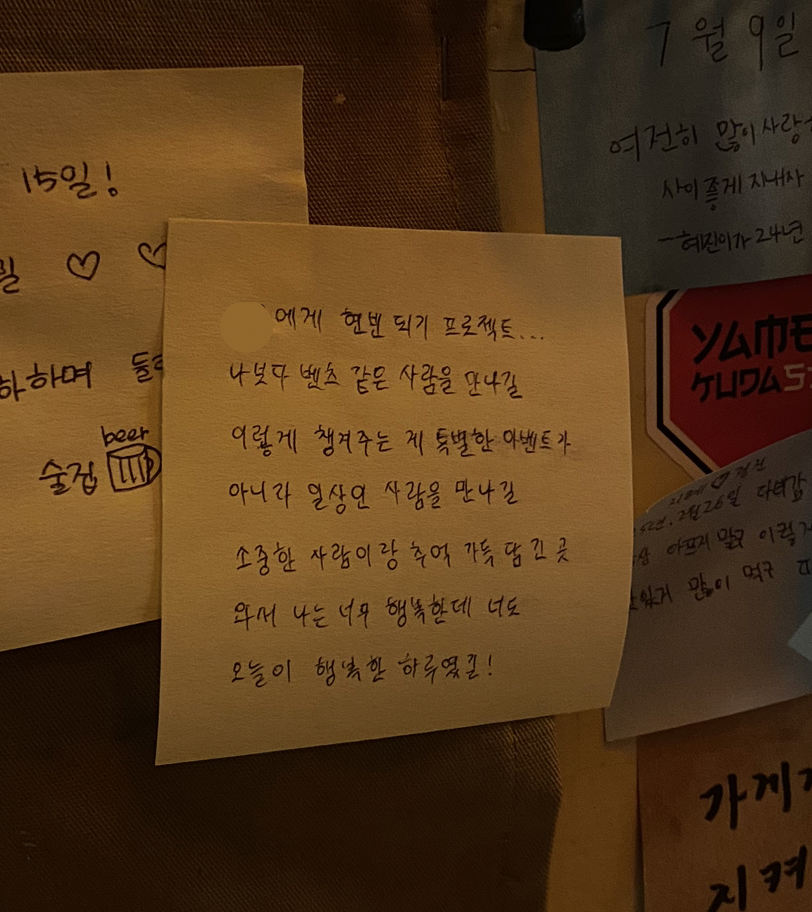 15일!
하며
beer
술집
에게 현빈 되기 프로젝트...
나보다 벤츠 같은 사람을 만나길
이렇게 챙겨주는 게 특별한 이벤트가
아니라 일상인 사람을 만나길
소중한 사람이랑 추억 가득 담긴 곳
와서 나는 너무 행복한데 너도
오늘이 행복한 하루였길!
7월 9일
여전히 많이 사랑
사이좋게 지내자
-혜진이가 24년
YAME
KUDAS
2월 26일 다녀감
아프지 말고
많이 먹구
가게
지켜